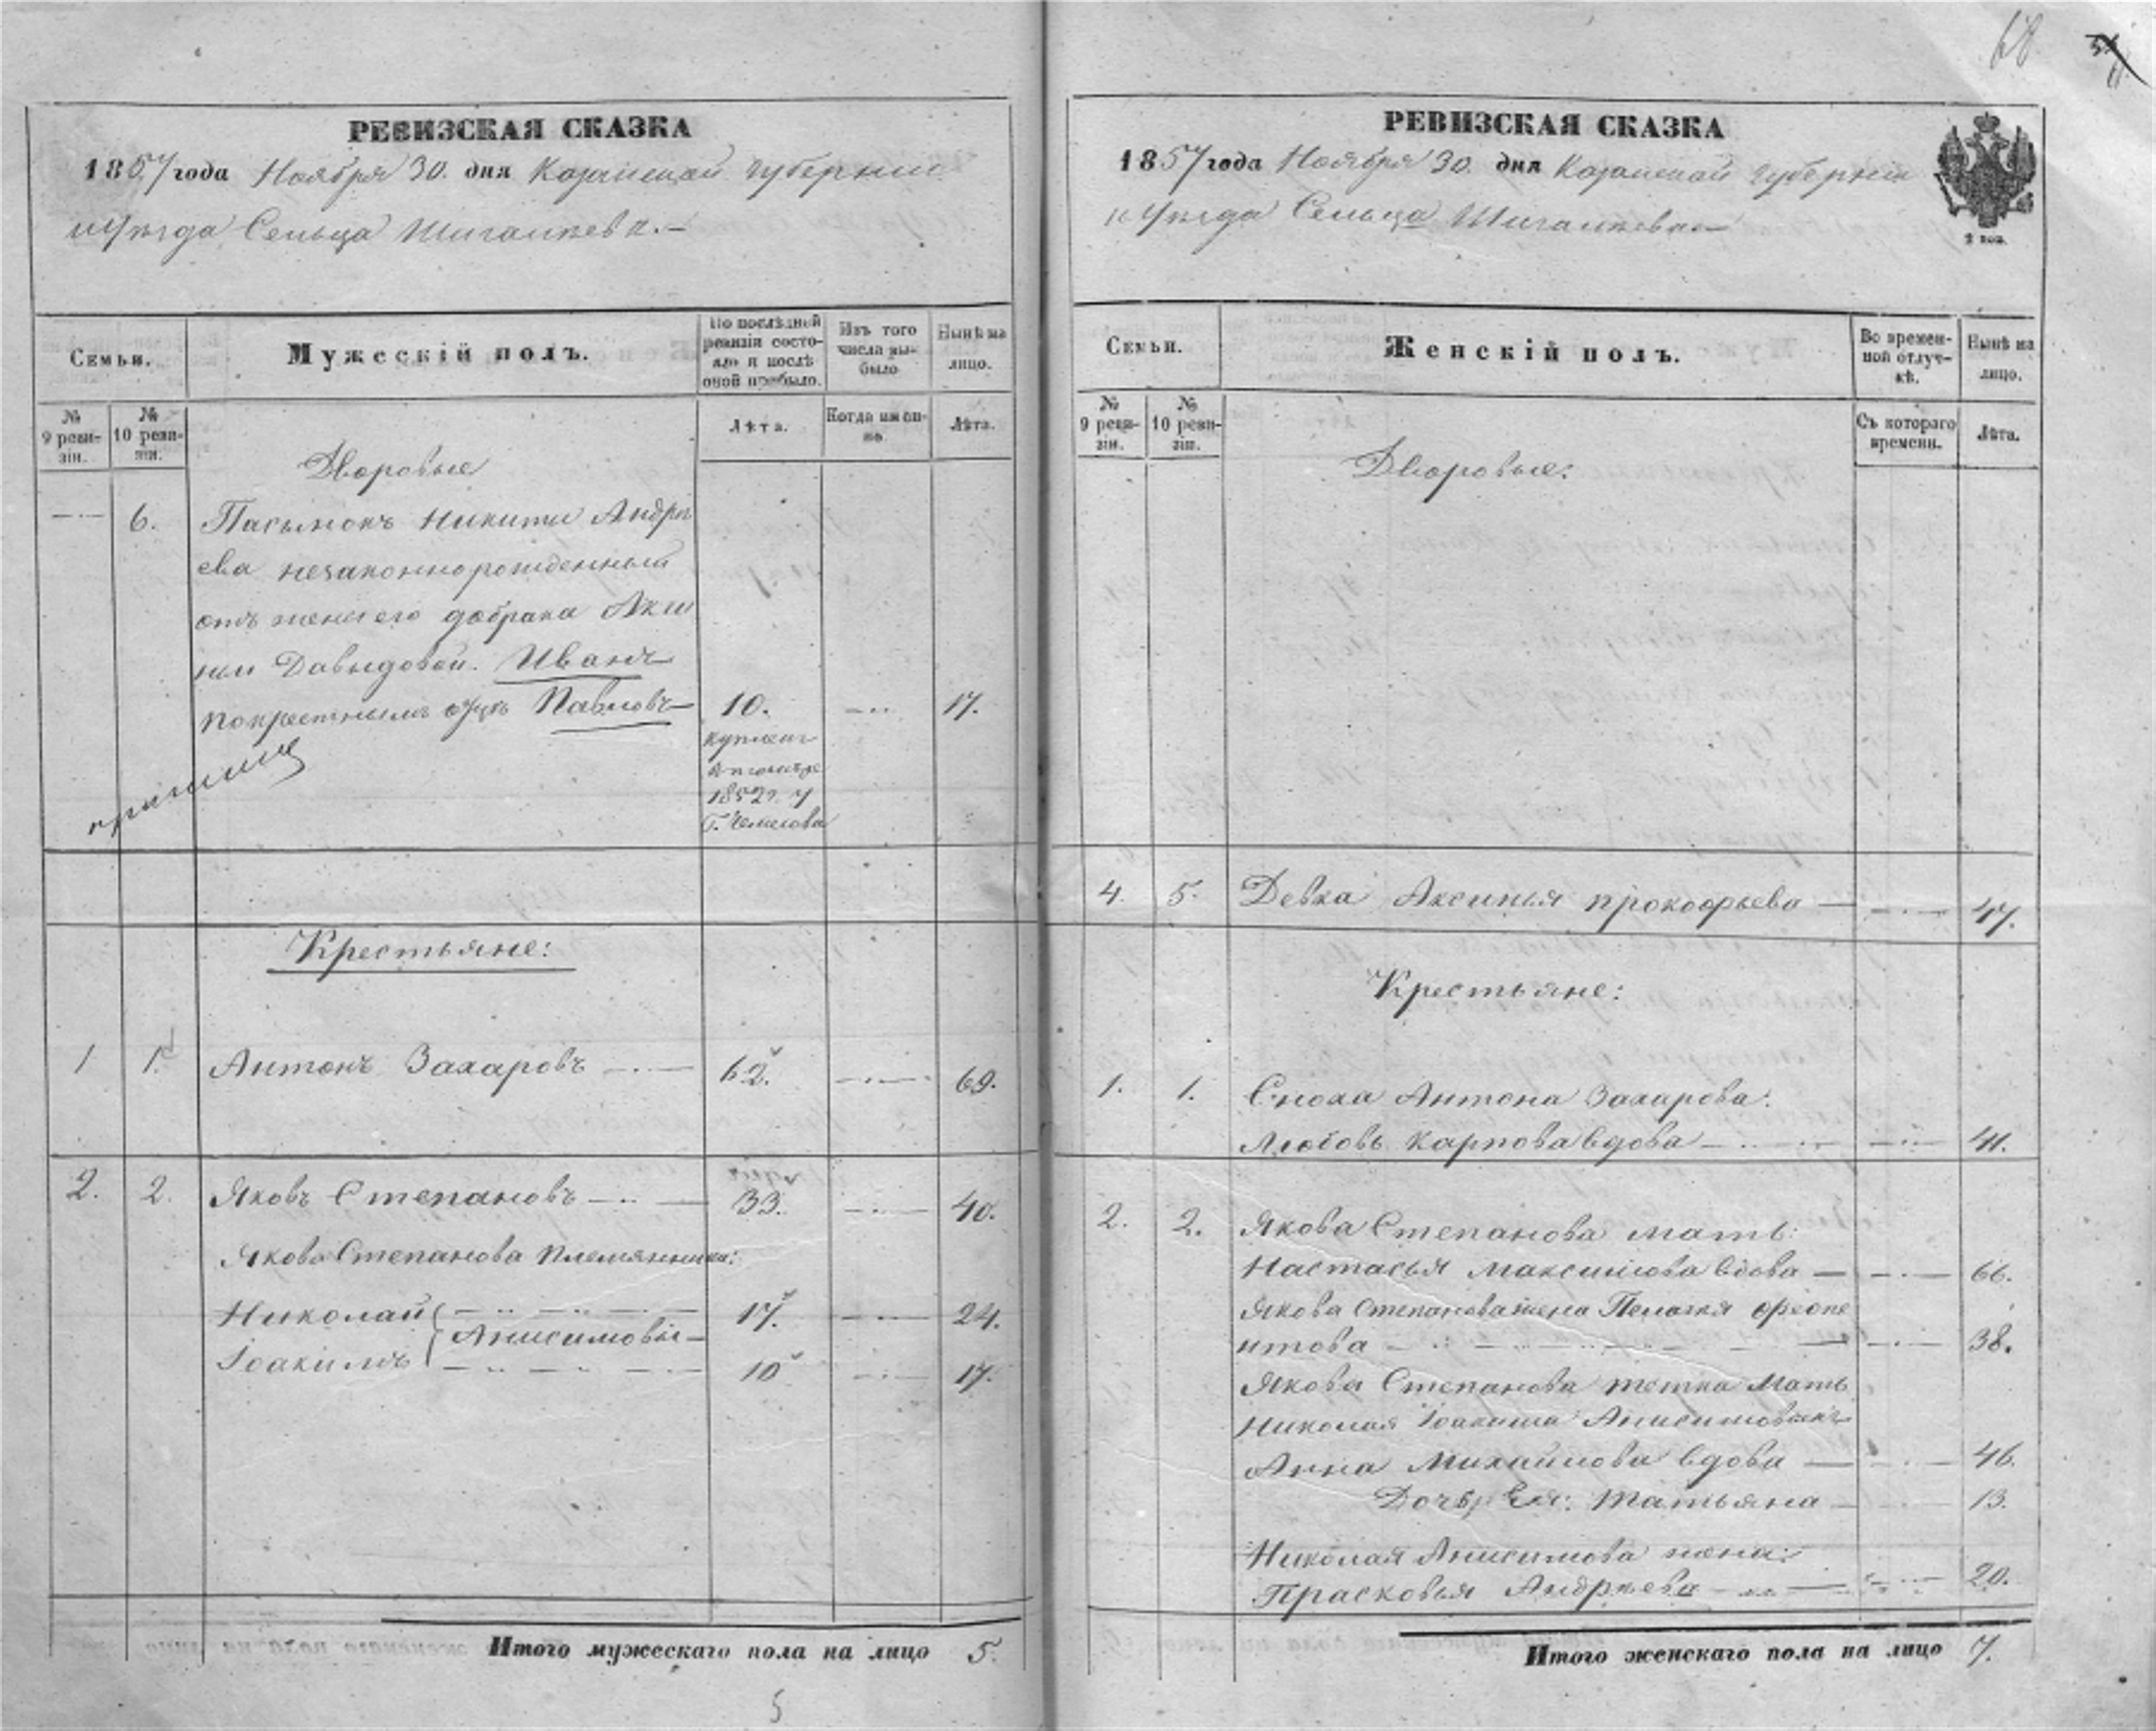 68
РЕВИЗСКАЯ СКАЗКА
1857 года Ноября 30. дня Казанской губернии
и Уѣзда Сельца Шигалѣева.—
Семьи.
Мужескій полъ.
По послѣдней ревизіи состояло и послѣ оной прибыло.
Изъ того числа выбыло
Нынѣ на лицо.
№ 9 ревизіи.
№ 10 ревизіи.
Лѣта.
Когда именно
Лѣта.
Дворовые
— 6. Пасынокъ Никиты Андрѣ
ева незаконнорожденный
отъ жены его до брака Акси
ньи Давыдовой. Иванъ
по крестному отцу Павловъ— 10. — 17.
Купленъ
1852 г. у
Г.
Крестьяне:
1 1. Антонъ Захаровъ — 62. — 69.
2. 2. Яковъ Степановъ — 33. — 40.
Якова Степанова племянники:
Николай — 17. — 24.
Анисимовы—
Іоакимъ — 10 — 17.
Итого мужескаго пола на лицо 5.
5
РЕВИЗСКАЯ СКАЗКА
1857 года Ноября 30. дня Казанской губерніи
и Уѣзда Сельца Шигалѣева—
2 коп.
Семьи.
Женскій полъ.
Во временной отлучкѣ.
Нынѣ на лицо.
№ 9 ревизіи.
№ 10 ревизіи.
Съ котораго времени.
Лѣта.
Дворовые:
4. 5. Девка Аксинья Прокофьева — 47.
Крестьяне:
1. 1. Сноха Антона Захарова:
Любовь Карпова вдова — 41.
2. 2. Якова Степанова мать:
Настасья Максимова вдова — 66.
Якова Степанова жена Пелагея Феопе
нтова — 38.
Якова Степанова тетка мать
Николая Іоакима Анисимовыхъ
Анна Михайлова вдова — 46.
Дочь Ея: Татьяна — 13.
Николая Анисимова жена:
Прасковья Андрѣева — 20.
Итого женскаго пола на лицо 7.